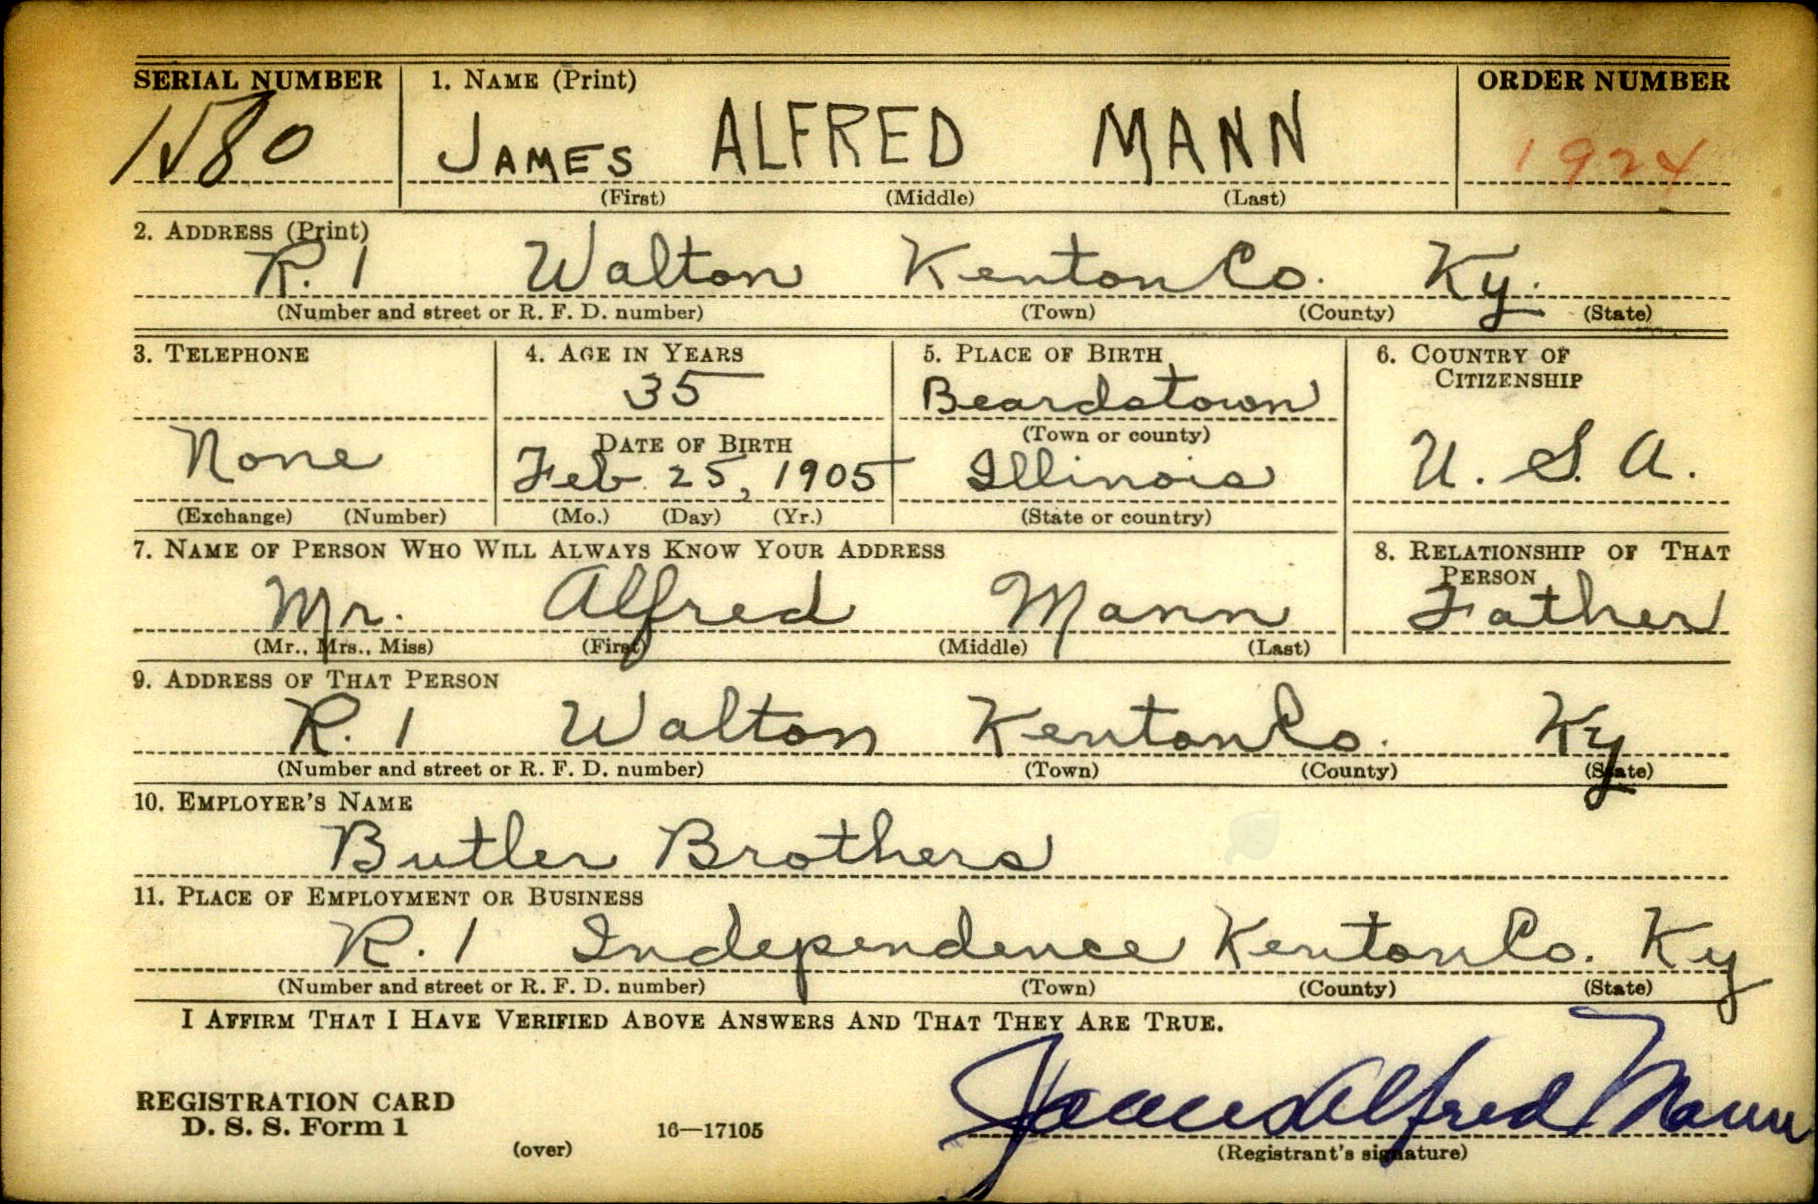 SERIAL NUMBER 1. NAME (Print) ORDER NUMBER
1580 JAMES ALFRED MANN 1924
(First) (Middle) (Last)
2. ADDRESS (Print)
R. 1 Walton Kenton Co. Ky.
(Number and street or R. F. D. number) (Town) (County) (State)
3. TELEPHONE 4. AGE IN YEARS 5. PLACE OF BIRTH 6. COUNTRY OF
CITIZENSHIP
35 Beardstown
DATE OF BIRTH (Town or county)
None Feb. 25, 1905 Illinois U. S. A.
(Exchange) (Number) (Mo.) (Day) (Yr.) (State or country)
7. NAME OF PERSON WHO WILL ALWAYS KNOW YOUR ADDRESS 8. RELATIONSHIP OF THAT
PERSON
Mr. Alfred Mann Father
(Mr., Mrs., Miss) (First) (Middle) (Last)
9. ADDRESS OF THAT PERSON
R. 1 Walton Kenton Co. Ky
(Number and street or R. F. D. number) (Town) (County) (State)
10. EMPLOYER'S NAME
Butler Brothers
11. PLACE OF EMPLOYMENT OR BUSINESS
R. 1 Independence Kenton Co. Ky
(Number and street or R. F. D. number) (Town) (County) (State)
I AFFIRM THAT I HAVE VERIFIED ABOVE ANSWERS AND THAT THEY ARE TRUE.
REGISTRATION CARD
D. S. S. Form 1 16—17105 James Alfred Mann
(over) (Registrant's signature)